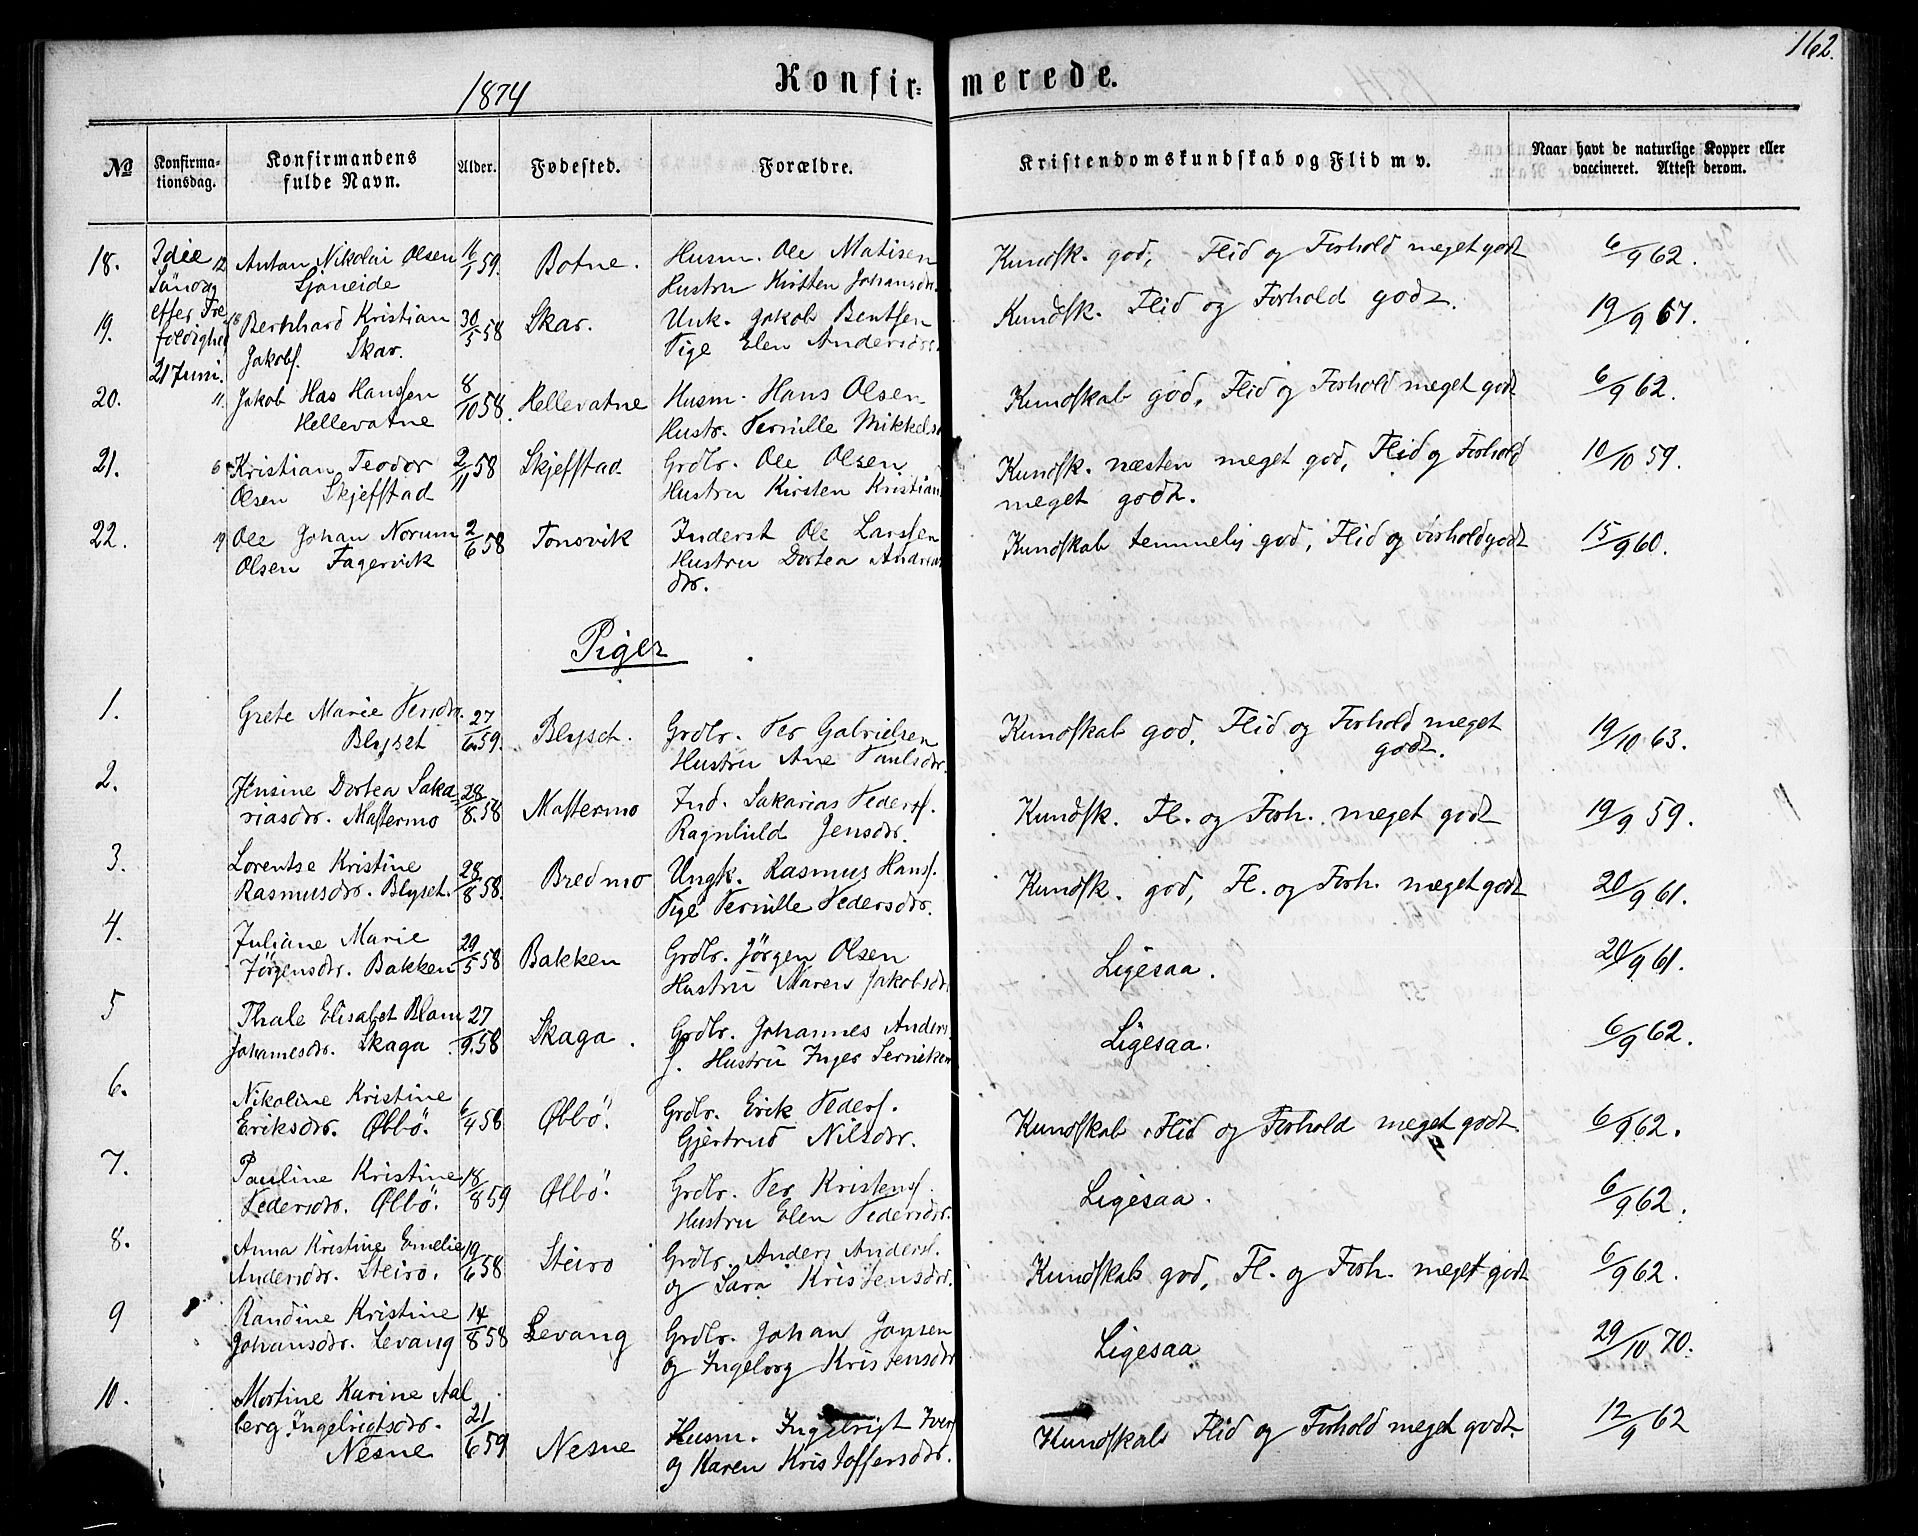 162.
1874
Konfir=merede.
No
Konfirmationsdag.
Konfirmandens fulde Navn.
Alder.
Fødested.
Forældre.
Kristendomskundskab og Flid m v.
Naar havt de naturlige Kopper eller vaccineret. Attest derom.
18. 3die Søndag 12 Antan Nikolai Olsen Sjøneide 11/1 59. Botne. Husm. Ole Matisen Hustru Kirsten Johansdr. Kundsk. god, Flid og Forhold meget godt 6/9 62.
19. efter Trefoldighed 21 Juni. 18 Bernhard Kristian Jakobs. Skar. 30/5 58 Skar. Unk. Jakob Bentsen Pige Elen Andersdr. Kundsk. Flid og Forhold godt. 19/9 67.
20. 11. Jakob Has Hanssen Hellevatne 8/10 58. Hellevatne Husm. Hans Olsen Hustr. Pernille Mikkels Kundskab god, Flid og Forhold meget godt 6/9 62.
21. 6 Kristian Teodor Olsen Skjefstad 2/11 58 Skjefstad Grdbr. Ole Olsen Hustru Kirsten Kristian Kundsk. næsten meget god, Flid og Forhold meget godt. 10/10 59.
22. 19 Ole Johan Norum Olsen Fagervik 2/6 58 Tonsvik Inderst Ole Larssen Hustru Dortea Andreas dr. Kundskab temmelig god, Flid og Forhold godt 15/9 60.
Piger
1. Grete Marie Persdr. Blyset 27/6 59. Blyset. Grdbr. Per Gabrielsen Hustru Ane Paulsdr. Kundskab god, Flid og Forhold meget godt. 19/10 63.
2. Jensine Dortea Sakariasdr. Mastermo 28/8. 58 Mastermo Ind. Sakarias Peders. Ragnhild Jensdr. Kundsk. Fl. og Forh. meget godt 19/9 59.
3. Lorentse Kristine Rasmusdr. Blyset. 28/8 58. Bredmo Ungk. Rasmus Hans. Pige Pernille Pedersdr. Kundsk. god, Fl. og Forh. meget godt 20/9 61.
4. Juliane Marie Jörgensdr. Bakken 29/5 58 Bakken Grdbr. Jörgen Olsen Hustru Maren Jakobsdr Ligesaa. 20/9 61.
5 Thale Elisabet Blam Johannesdr. Skaga 27/9. 58 Skaga. Grdbr. Johannes Anders s. Hustru Inger Ligesaa. 6/9 62.
6. Nikoline Kristine Eriksdr. Ølbö. 6/4 58 Ølbö. Grdbr. Erik Peders. Gjertrud Nilsdr. Kundskab, Flid og Forhold meget godt. 6/9 62.
7. Pauline Kristine Pedersdr. Ølbö. 18/8 59 Ølbö. Grdbr. Per Kristens. Hustru Elen Pedersdr. Ligesaa. 6/9 62.
8. Anna Kristine Emelie Andersdr. Steiro. 19/6 58 Steiro Grdbr. Anders Anders. og Sara Kristensdr. Kundskab god, Fl. og Forh. meget godt 6/9 62.
9 Randine Kristine Johansdr. Levang 14/8 58 Levang Grdbr. Johan Jonsen og Ingeborg Kristensdr Ligesaa 29/10 70.
10. Mortine Karine Aalberg Ingebrigtsdr. Nesne 21/6 59 Nesne Husm. Ingebrigt Ivers og Karen Kristoffersdr. Kundskab Flid og Forhold meget godt. 12/9 62